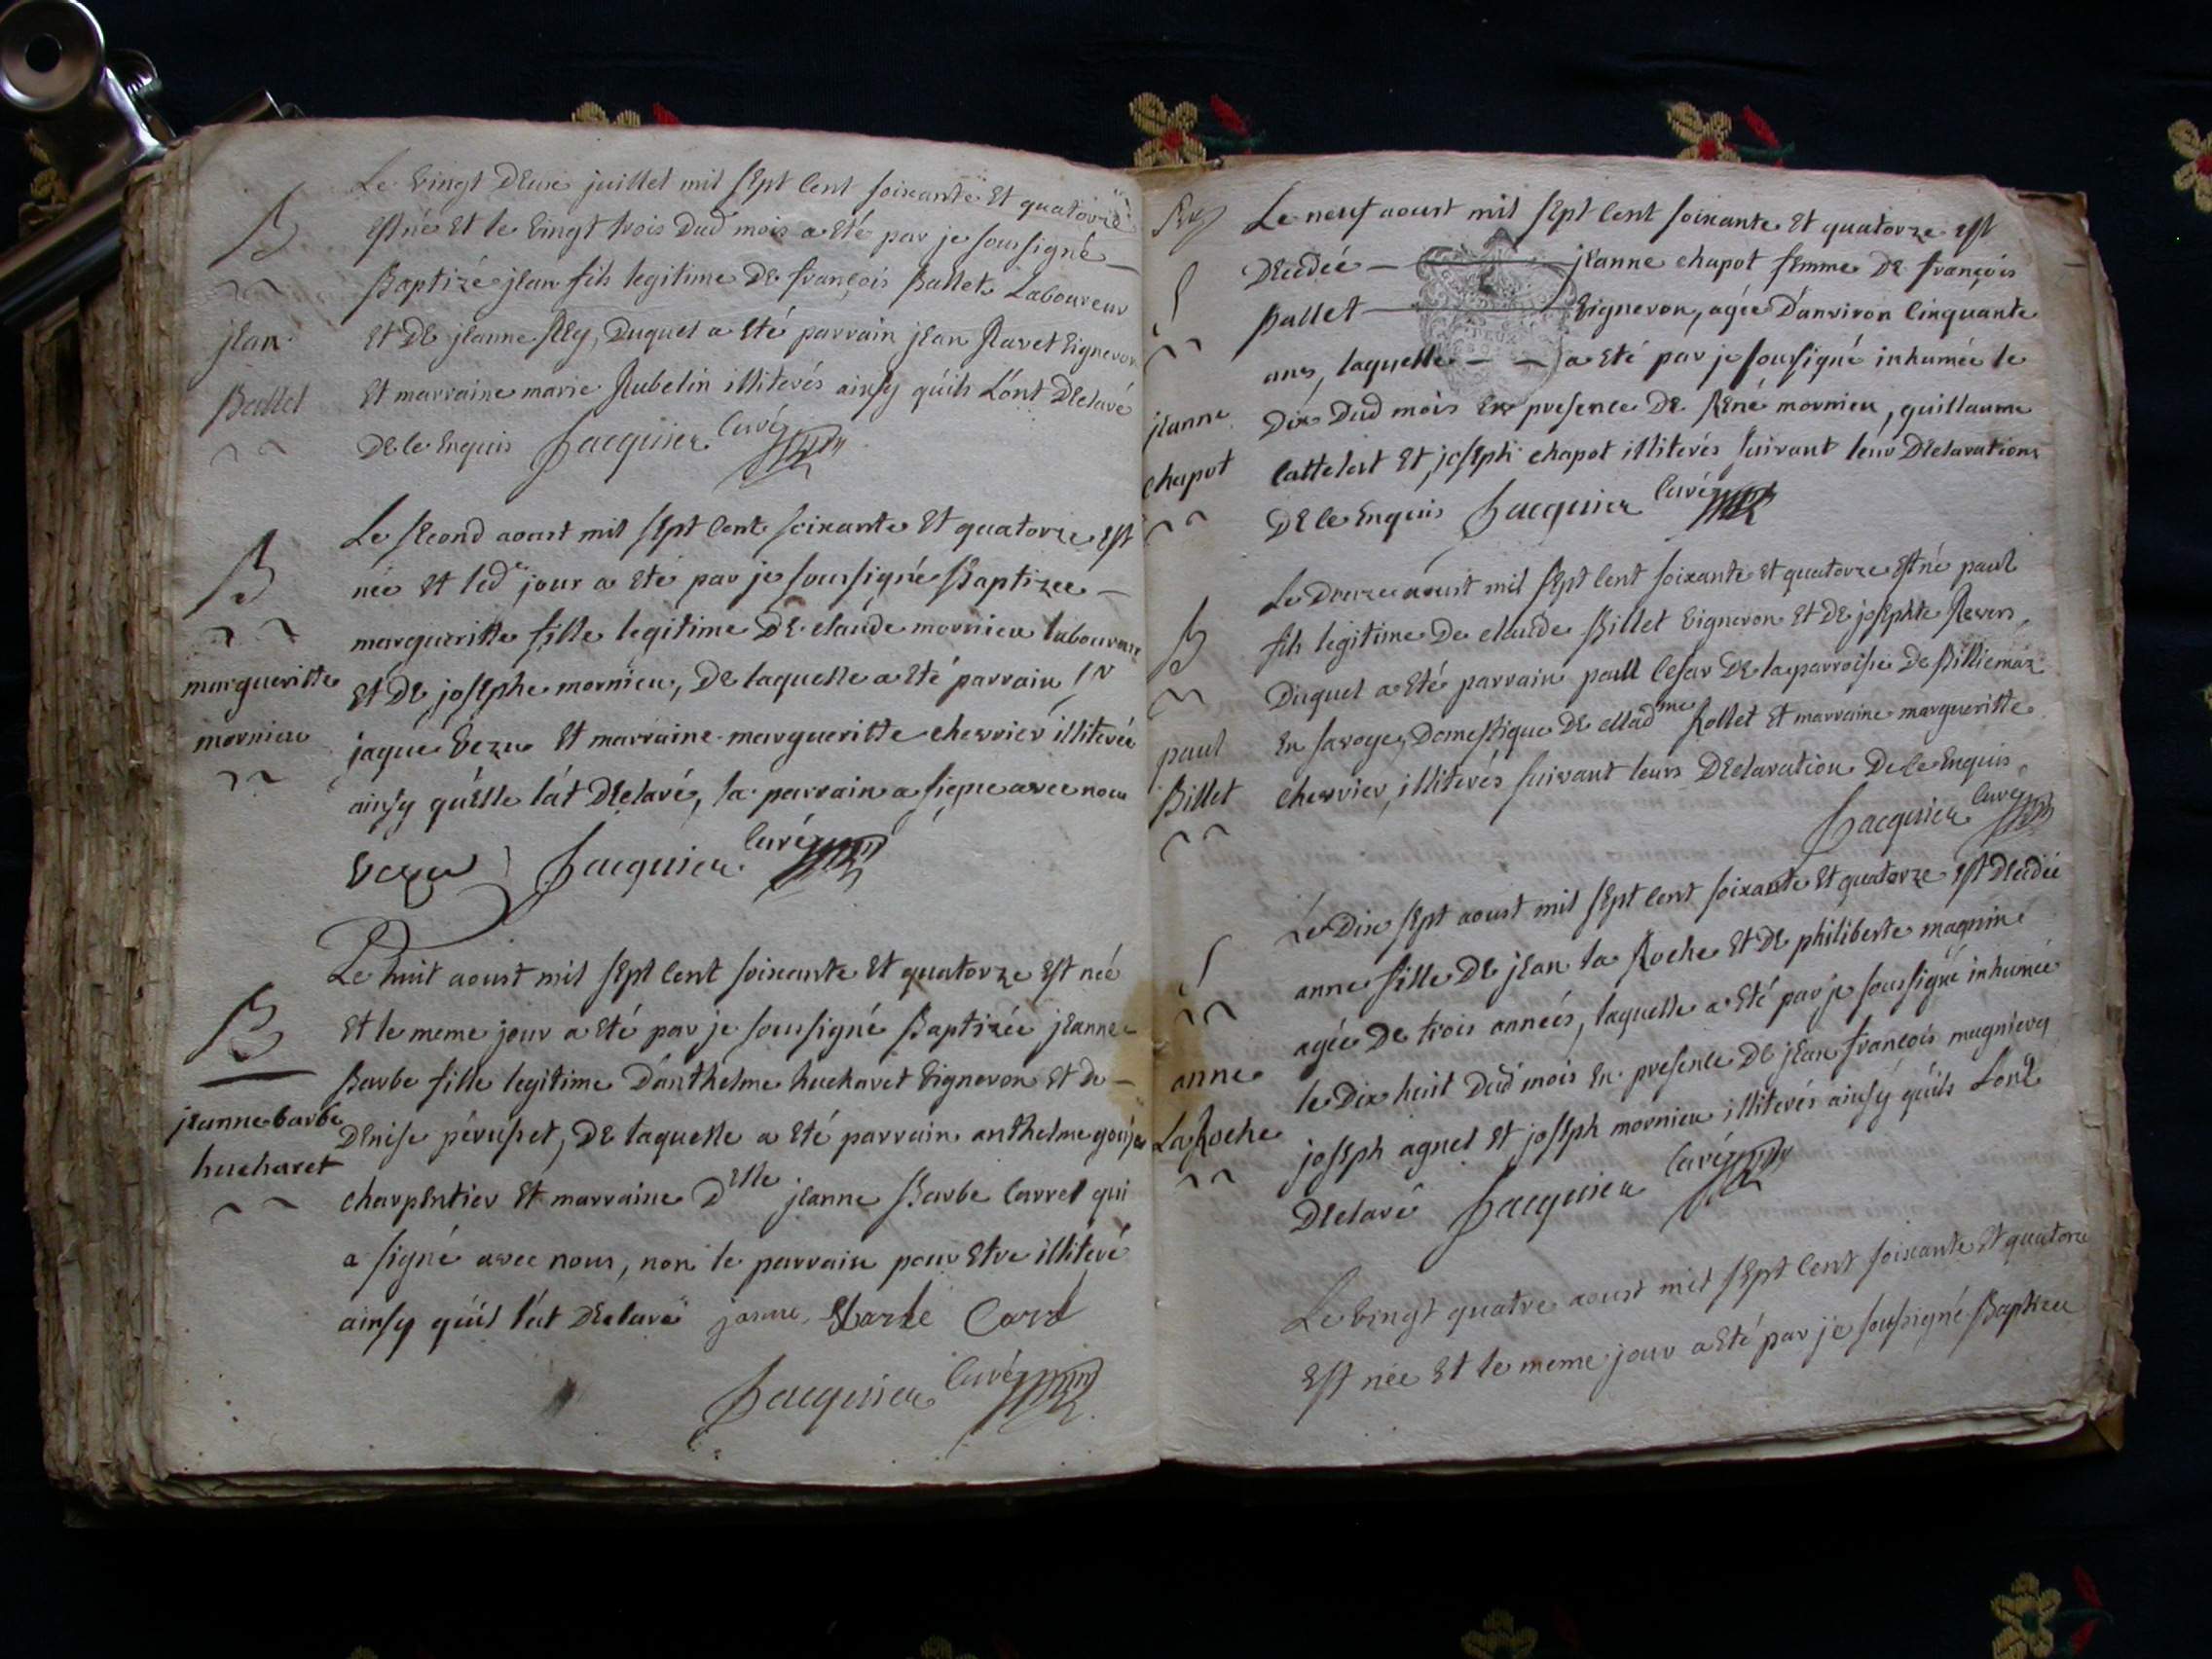 Le vingt deux juillet mil sept cent soixante et quatorze
B
est né et le vingt trois dud mois a eté par je soussigné
Baptizé jean fils legitime de françois Ballet Laboureur
jean
et de jeanne Rey, duquel a eté parrain jean Ravet vigneron
Ballet
et marraine marie Rubelin illiterés ainsy qu'ils l'ont declaré
de ce enquis Jacquier curé
Le second aoust mil sept cent soixante et quatorze est
B
née et led jour a eté par je soussigné Baptizee
margueritte fille legitime de claude mornieu laboureur
margueritte
et de josephe mornieu, de laquelle a eté parrain Sr
mornieu
jaque Vezu et marraine margueritte chevrier illiterée
ainsy qu'elle l'at declaré, la parrain a signe avec nous
Vezu Jacquier curé
Le huit aoust mil sept cent soixante et quatorze est née
B
et le meme jour a eté par je soussigné Baptizée jeanne
Barbe fille legitime d'anthelme hucharet vigneron et de
jeanne barbe
denise pérusset, de laquelle a eté parrain anthelme
hucharet
charpentier et marraine delle jeanne Barbe Carrel qui
a signé avec nous, non le parrain pour etre illiteré
ainsy qu'il l'at declaré jeanne Barbe Carel
Jacquier curé
Le neuf aoust mil sept cent soixante et quatorze est
decedée jeanne chapot femme de françois
S
Ballet vigneron, agée d'anviron cinquante
ans, laquelle a eté par je soussigné inhumée le
jeanne
dix dud mois en presence de René mornieu, guillaume
chapot
et joseph chapot illiterés suivant leur declarations
de ce enquis Jacquier curé
Le douze aoust mil sept cent soixante et quatorze est né paul
B
fils legitime de claude Billet vigneron et de josephte Revers,
duquel a eté parrain paull Cesar de la parroisse de Billiemaz
paul
en savoye, domestique de Madme Rollet et marraine margueritte
Billet
chevrier, illiterés suivant leurs declaration de ce enquis
Jacquier curé
Le dix sept aoust mil sept cent soixante et quatorze est decedée
S
anne fille de jean la Roche et de philiberte magnin
agée de trois années, laquelle a eté par je soussigné inhumée
anne
le dix huit dud mois en presence de jean françois
La Roche
joseph agnel et joseph mornieu illiterés ainsy qu'ils l'ont
declaré Jacquier curé
Le vingt quatre aoust mil sept cent soixante et quatorze
est née et le meme jour a eté par je soussigné Baptizee